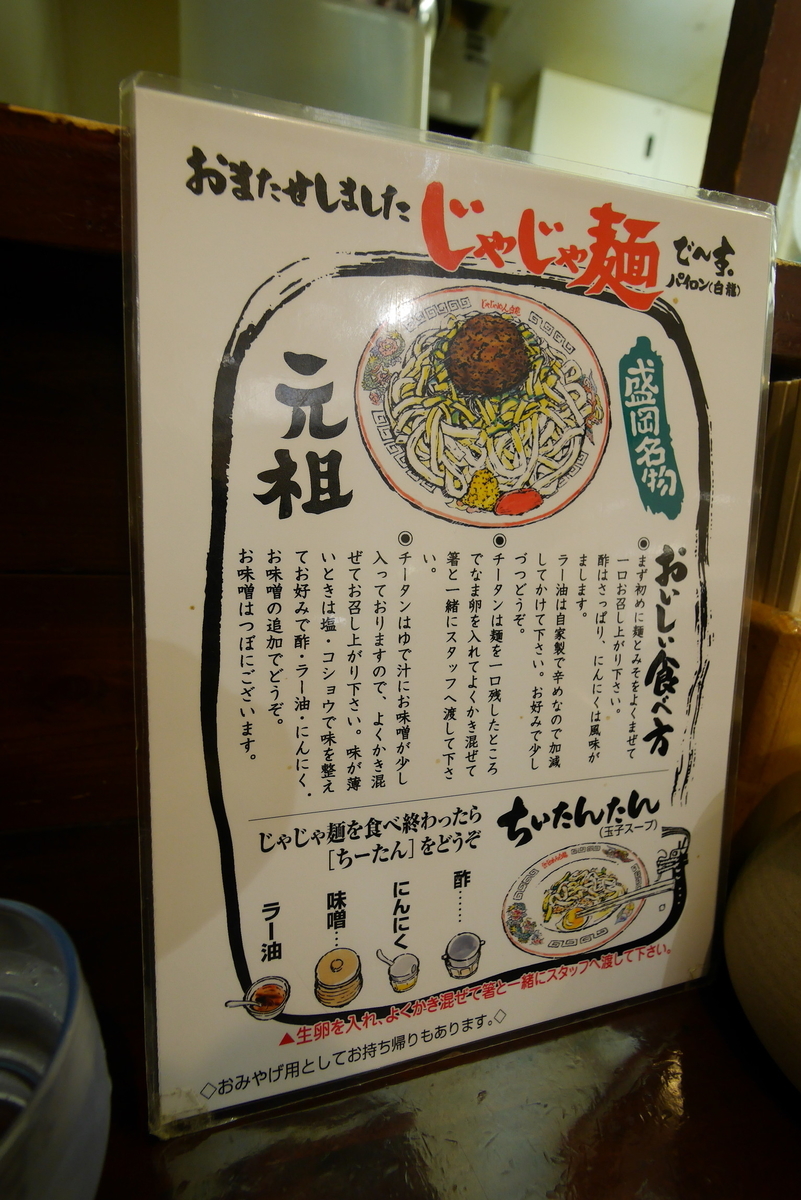 おまたせしました
じゃじゃ麺
でんす。
パイロン(白龍)
じゃじゃめん
元祖
盛岡名物
おいしい食べ方
◉まず初めに麺とみそをよくまぜて
一口お召し上がり下さい。
酢はさっぱり、にんにくは風味が
まします。
ラー油は自家製で辛めなので加減
してかけて下さい。お好みで少し
づつどうぞ。
◉チータンは麺を一口残したところ
でなま卵を入れてよくかき混ぜて
箸と一緒にスタッフへ渡して下さ
い。
◉チータンはゆで汁にお味噌が少し
入っておりますので、よくかき混
ぜてお召し上がり下さい。味が薄
いときは塩・コショウで味を整え
てお好みで酢・ラー油・にんにく・
お味噌の追加でどうぞ。
お味噌はつぼにございます。
ちぃたんたん
(玉子スープ)
じゃじゃ麺を食べ終わったら
[ちーたん]をどうぞ
酢……
にんにく
味噌…
ラー油
▲生卵を入れ、よくかき混ぜて箸と一緒にスタッフへ渡して下さい。
◇おみやげ用としてお持ち帰りもあります。◇